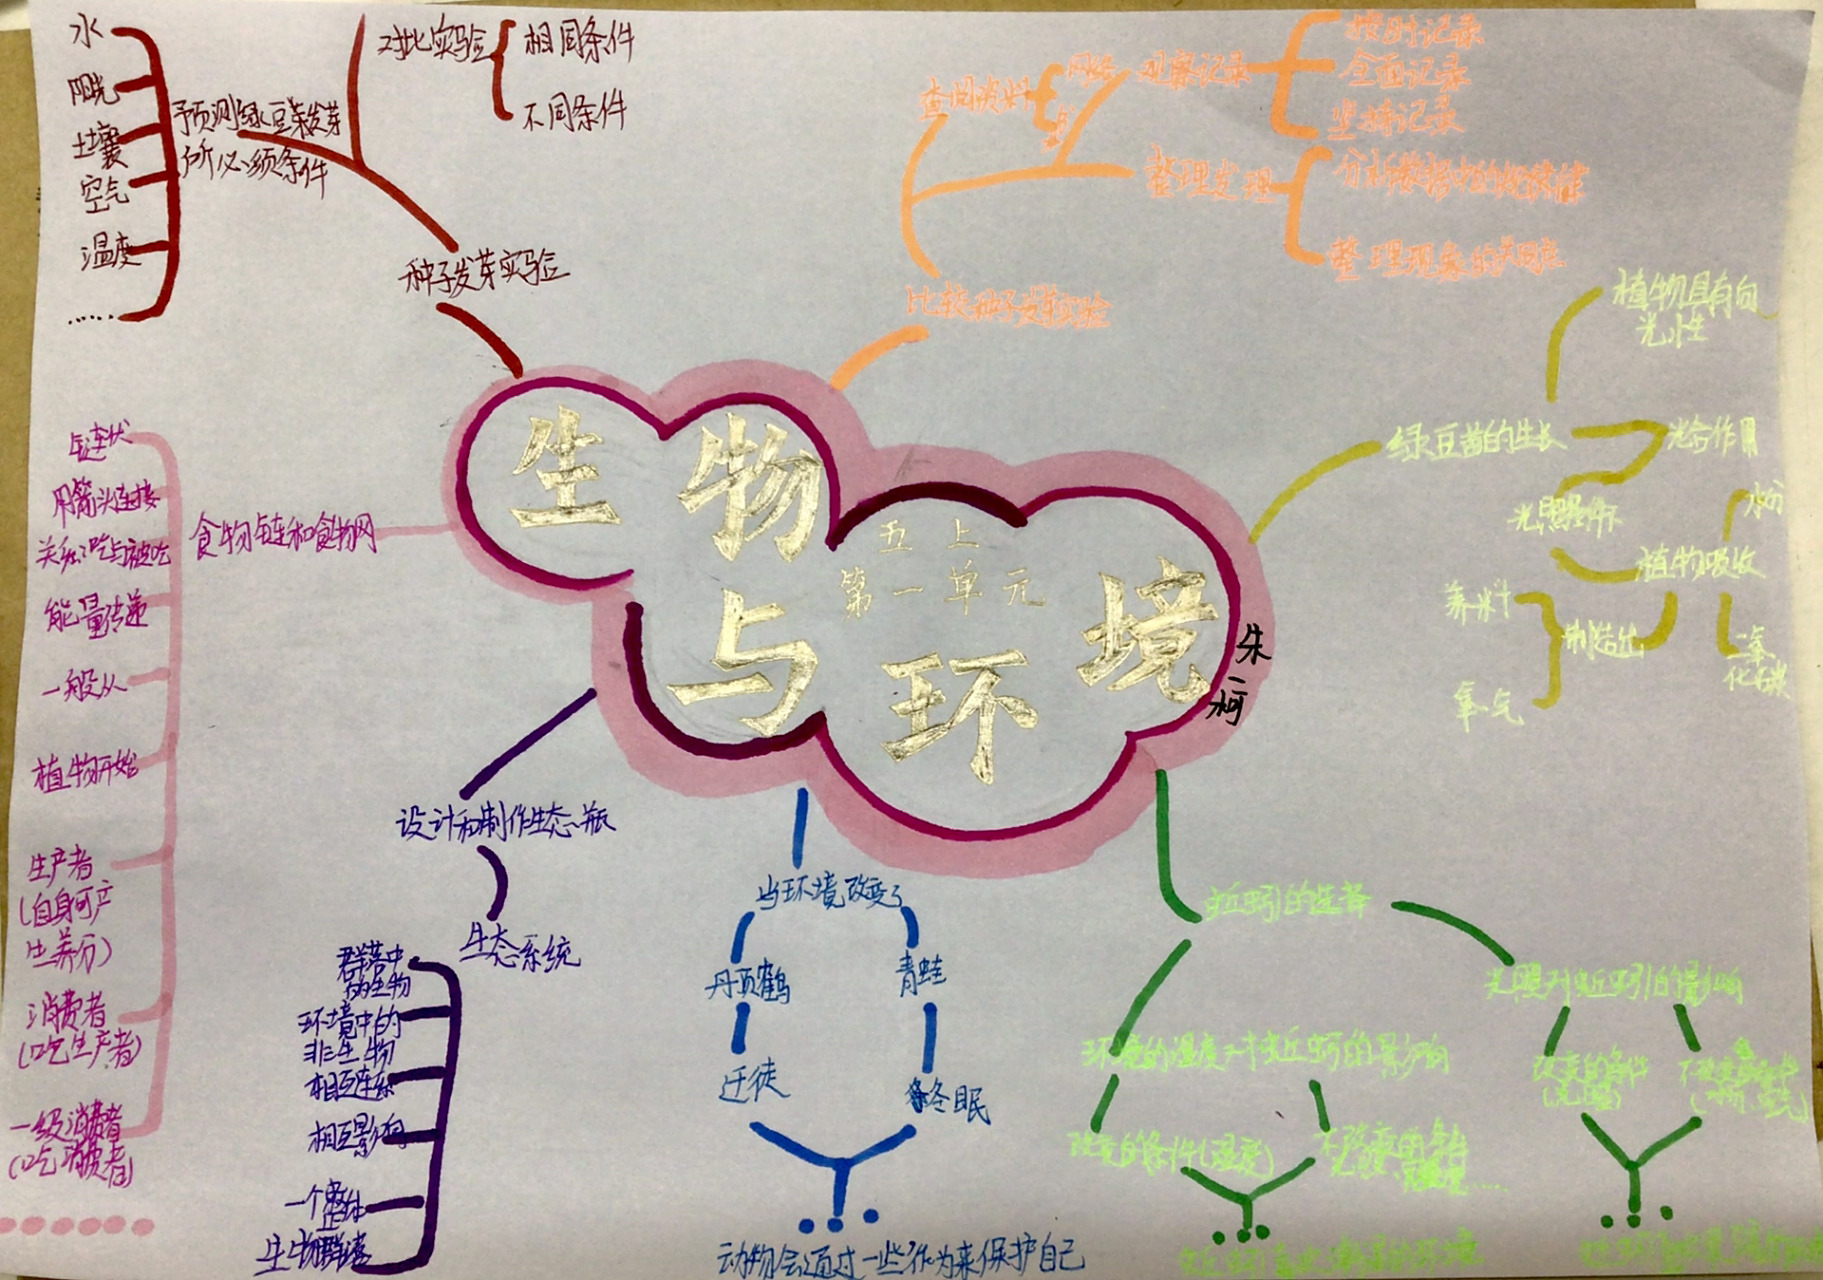 生物
与环境
五上
第一单元
朱一柯
种子发芽实验
预测绿豆种子发芽
所必须条件
水
阳光
土壤
空气
温度
......
对比实验
相同条件
不同条件
比较种子发芽实验
查阅资料
网络
书
观察记录
按时记录
全面记录
坚持记录
整理发理
整理现象的共同点
绿豆苗的生长
植物具有向
光性
光合作用
光照条件下
植物吸收
水分
二氧
化碳
制造出
养料
氧气
食物链和食物网
链状
用箭头连接
关系:吃与被吃
能量传递
一般从
植物开始
生产者
(自身可产
生养分)
消费者
(吃生产者)
一级消费者
(吃消费者)
设计和制作生态瓶
生态系统
群落中
的生物
环境中的
非生物
相互连系
相互影响
一个整体
生物群落
当环境改变了
丹顶鹤
迁徒
青蛙
冬眠
动物会通过一些作为来保护自己
蚯蚓的选择
环境的温度对蚯蚓的影响
改变的条件(温度)
不改变的条件
光照对蚯蚓的影响
改变的条件
(光照)